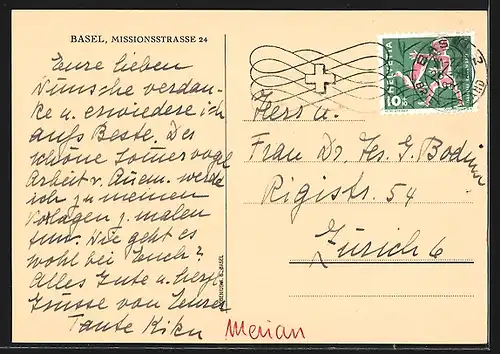 BASEL, MISSIONSSTRASSE 24
Eure lieben
Wünsche verdan-
ke u. erwiedere ich
aufs Beste. Der
schöne Sommervogel
Arbeit v. werde
ich zu meinen
Vorlagen z. malen
tun. Wie geht es
wohl bei Euch?
Alles Gute u. herzl.
Grüsse von Eurer
Tante Kiku Merian
HELVETIA
10
Herr u.
Frau Dr. Hs. G. Bodmer
Rigistr. 54
Zürich 6